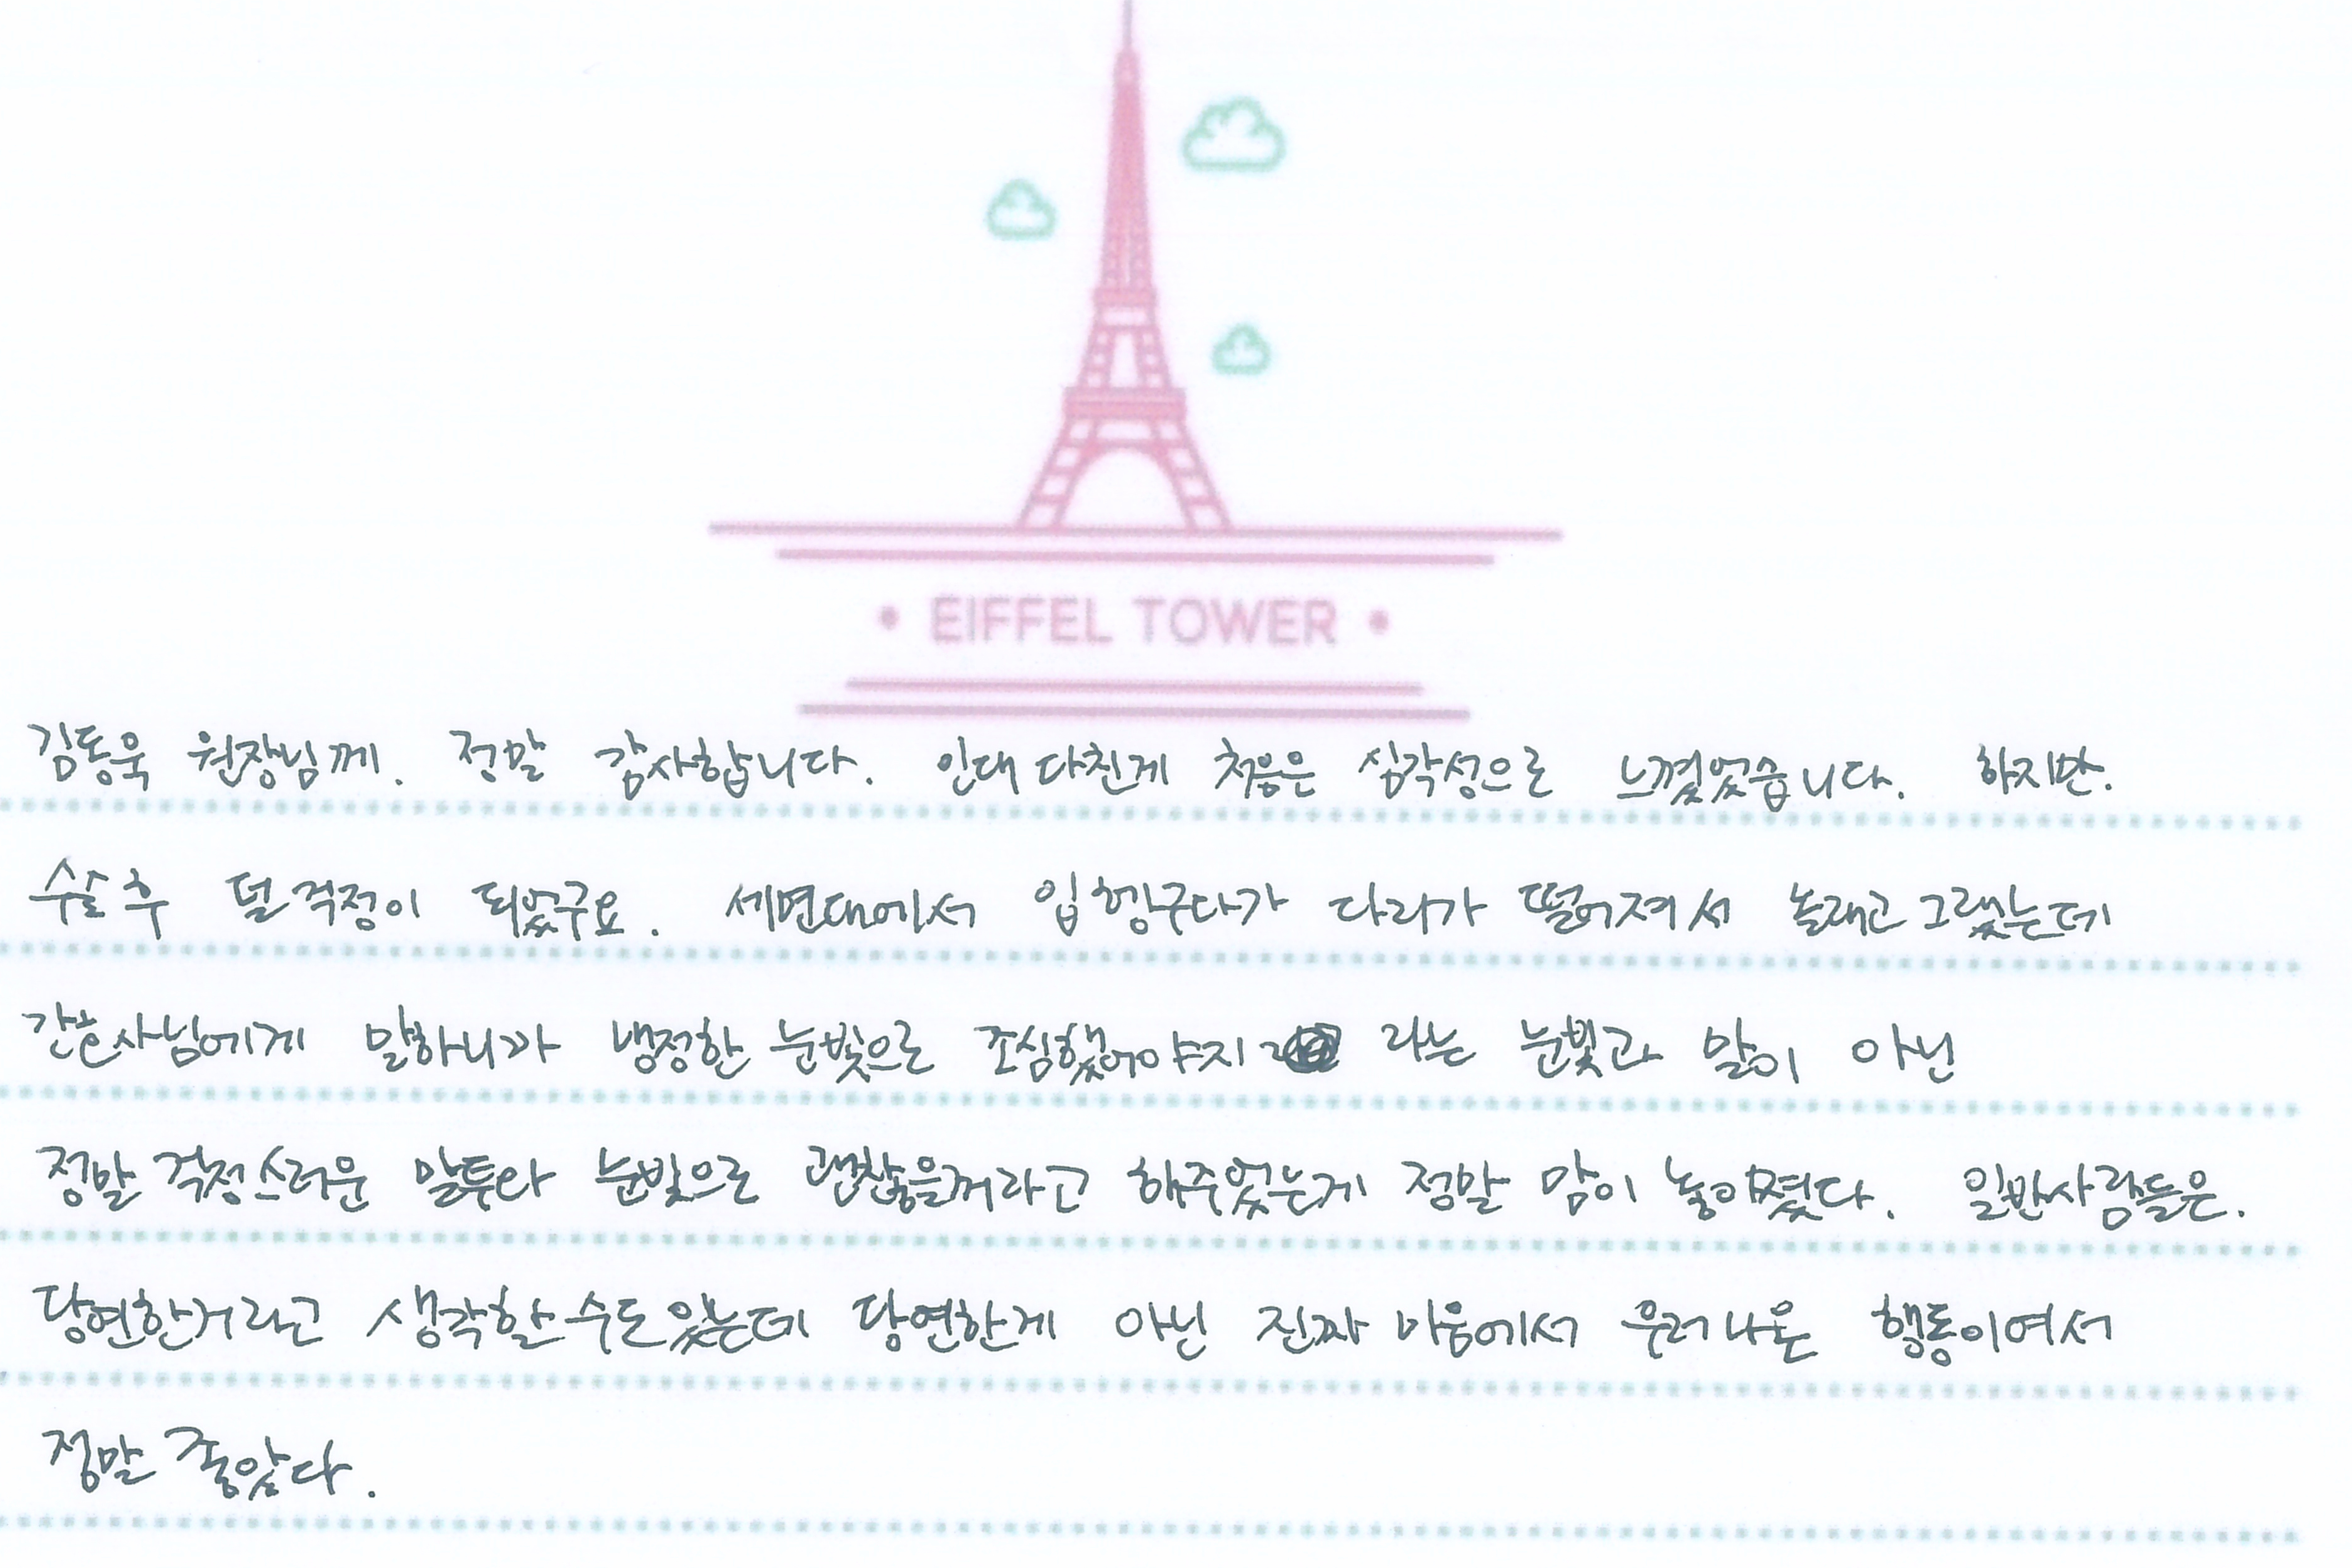 EIFFEL TOWER
김동욱 원장님께. 정말 감사합니다. 인대 다친게 처음은 심각성으로 느꼈었습니다. 하지만.
수술후 덜 걱정이 되었구요. 세면대에서 입헹구다가 다리가 떨어져서 놀래고 그랬는데
간호사님에게 말하니까 냉정한 눈빛으로 조심했어야지 라는 눈빛과 말이 아닌
정말 걱정스러운 말투와 눈빛으로 괜찮을꺼라고 해주었는게 정말 맘이 놓이몄다. 일반사람들은.
당연한거라고 생각할수도있는데 당연한게 아닌 진짜 마음에서 우러나온 행동이여서
정말 좋았다.